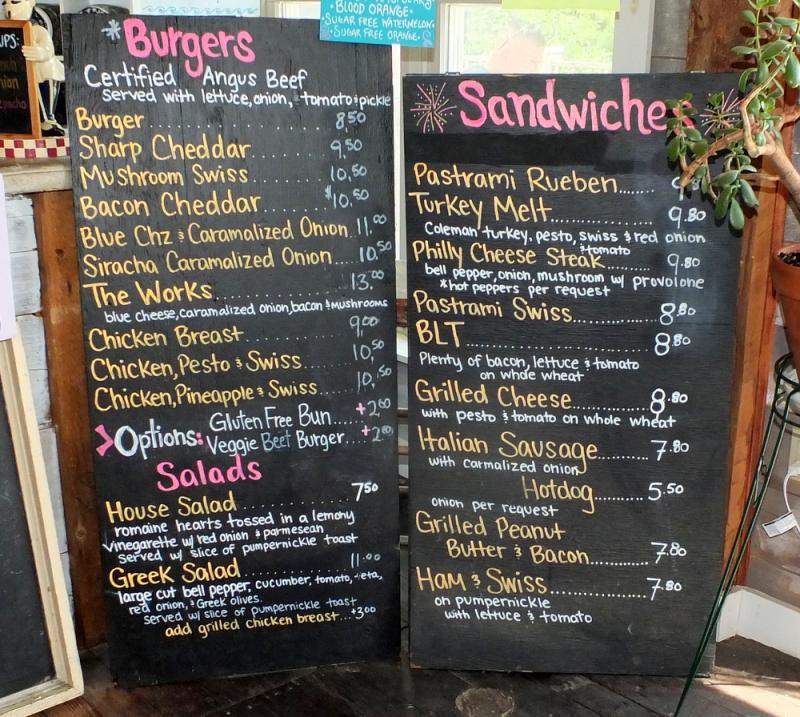 BLOOD ORANGE
SUGAR FREE WATERMELON
SUGAR FREE ORANGE
UPS:
*Burgers
Certified Angus Beef
served with lettuce, onion, tomato & pickle
Burger........ 8.50
Sharp Cheddar........ 9.50
Mushroom Swiss........ 10.50
Bacon Cheddar........ $10.50
Blue Chz & Caramalized Onion. 11.00
Siracha Caramalized Onion.... 10.50
The Works........ 13.00
blue cheese, caramalized onion, bacon & mushrooms
Chicken Breast........ 9.00
Chicken, Pesto & Swiss..... 10.50
Chicken, Pineapple & Swiss..... 10.50
>Options: Gluten Free Bun....+2.00
Veggie Beet Burger...+2.00
Salads
House Salad........ 7.50
romaine hearts tossed in a lemony
vinegarette w/ red onion & parmesean
served w/ slice of pumpernickle toast
Greek Salad........ 11.00
large cut bell pepper, cucumber, tomato, feta,
red onion, & Greek olives.
served w/ slice of pumpernickle toast
add grilled chicken breast...+3.00
Sandwiches
Pastrami Rueben......
Turkey Melt........ 9.80
Coleman turkey, pesto, swiss & red onion
& tomato
Philly Cheese Steak........ 9.80
bell pepper, onion, mushroom w/ provolone
*hot peppers per request
Pastrami Swiss........ 8.80
BLT........ 8.80
Plenty of bacon, lettuce & tomato
on whole wheat
Grilled Cheese........ 8.80
with pesto & tomato on whole wheat
Italian Sausage........ 7.80
with carmalized onion
Hotdog........ 5.50
onion per request
Grilled Peanut
Butter & Bacon........ 7.80
Ham & Swiss........ 7.80
on pumpernickle
with lettuce & tomato